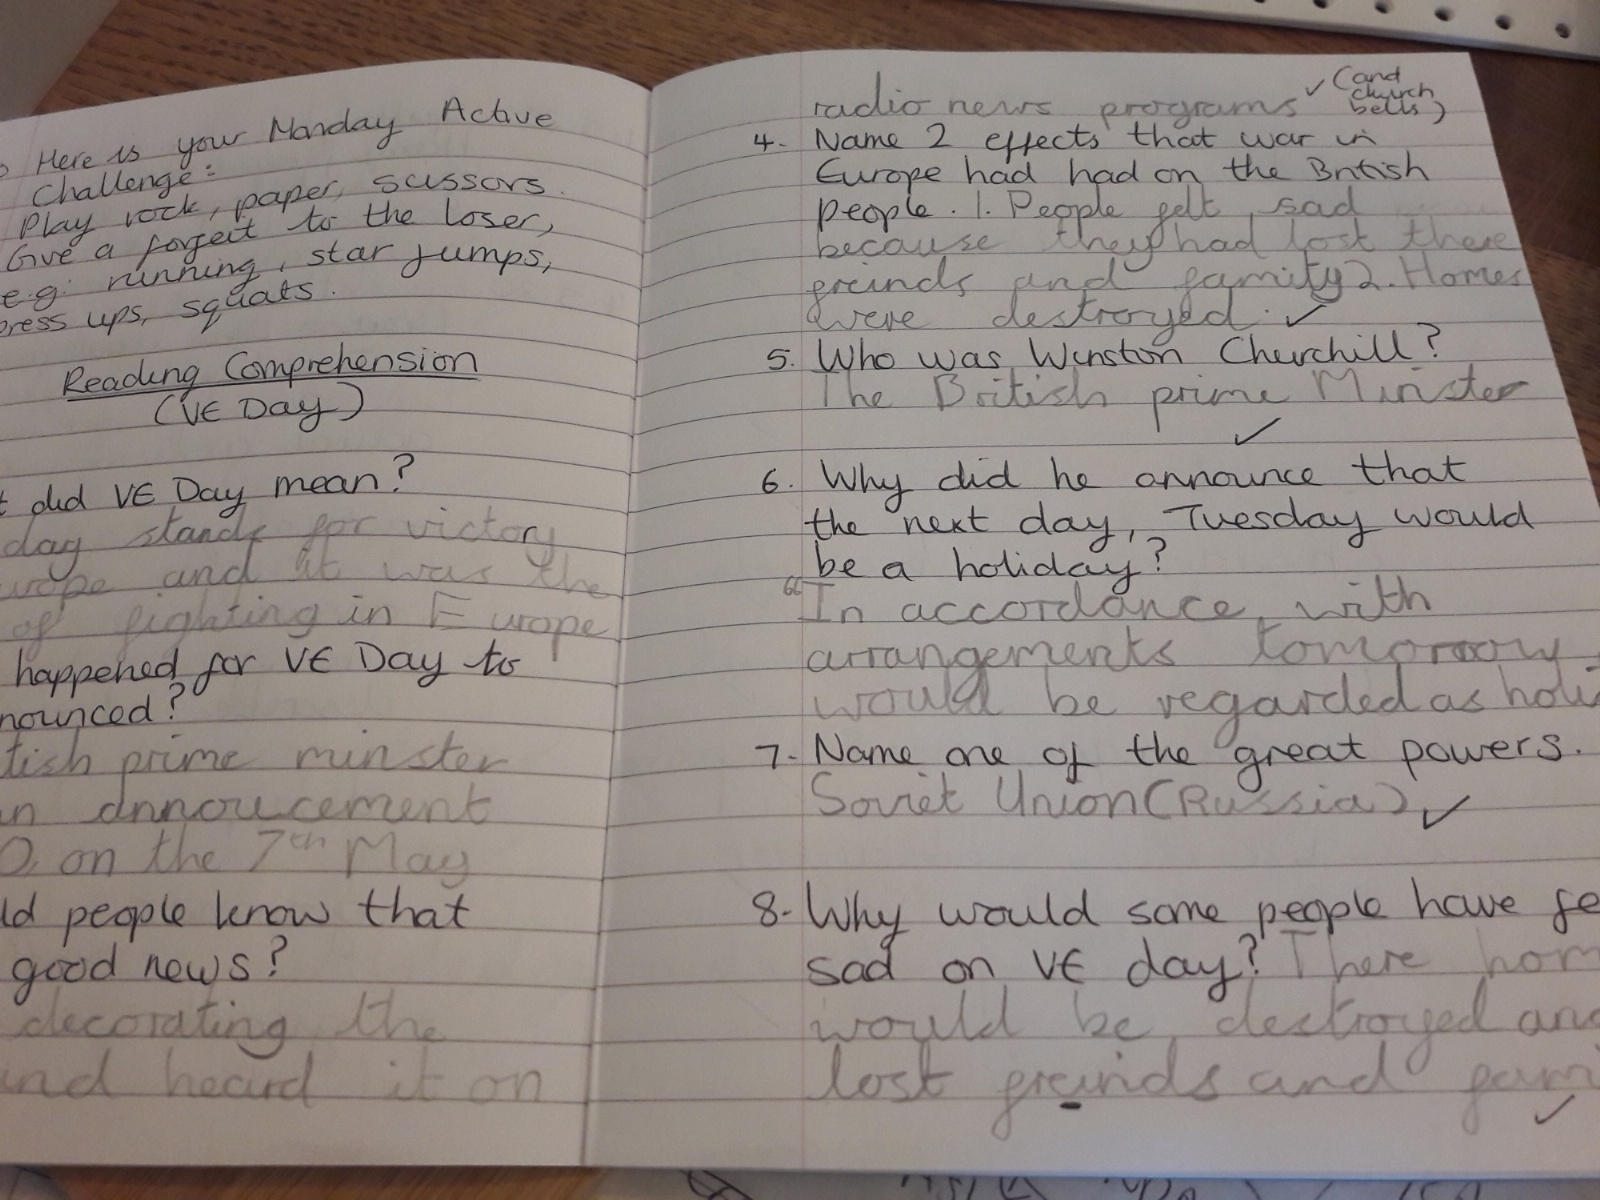 Here is your Monday Active
Challenge:
Play rock, paper, scissors.
Give a forfeit to the loser,
e.g. running, star jumps,
press ups, squats.
Reading Comprehension
(VE Day)
did VE Day mean?
day stands for victory
urope and it was the
of fighting in Europe
happened for VE Day to
nounced?
tish prime minster
an annoucement
on the 7th May
ld people know that
good news?
decorating the
and heard it on
radio news programs ✓ (and
church
bells)
4. Name 2 effects that war in
Europe had had on the British
people. 1. People felt sad
because they had lost there
freinds and family 2. Homes
were destroyed. ✓
5. Who was Winston Churchill?
The British prime Minster
✓
6. Why did he announce that
the next day, Tuesday would
be a holiday?
"In accordance with
arrangements tomorrow
would be regarded as holi
7. Name one of the great powers.
Soviet Union (Russia) ✓
8. Why would some people have fe
sad on VE day? There hom
would be destroyed and
lost freinds and fami
✓